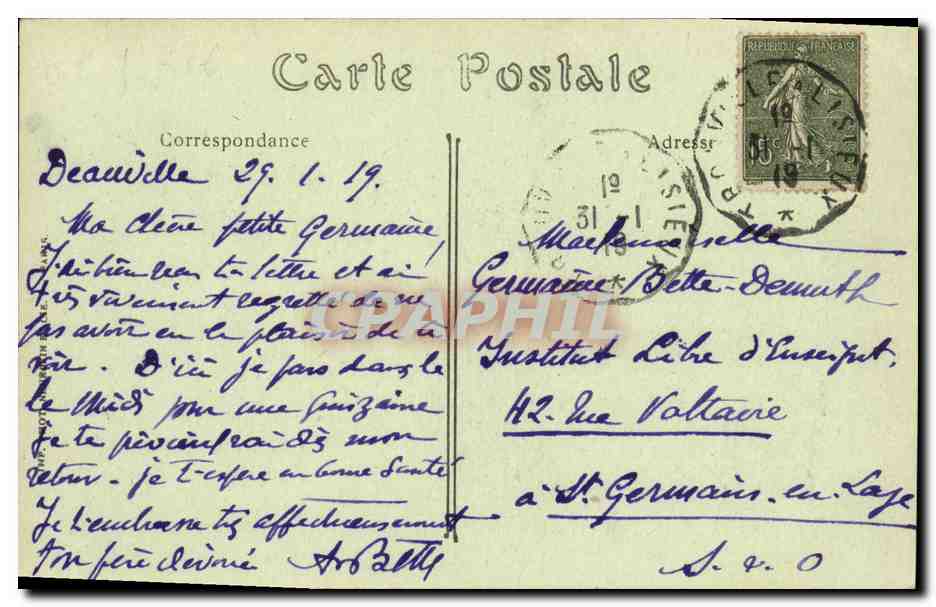 Carte Postale
Correspondance
Adresse
REPUBLIQUE FRANCAISE
15 c
TROUVILLE A LISIEUX
1º
31 - 1
19
Deauville 29. 1. 19.
Ma chère petite Germaine,
J'ai bien reçu ta lettre et ai
très vivement regretté de ne
pas avoir eu le plaisir de te
voir. D'ici je pars dans le
le Midi pour une quinzaine
Je te préviendrai dès mon
retour. je t'espère en bonne santé
Je t'embrasse très affectueusement
ton père dévoué ArBette
Mademoiselle
Germaine Bette-Demuth
Institut Libre d'Enseignt.
42 - Rue Voltaire
à St. Germain-en-Laye
S. & O
CPAPHIL